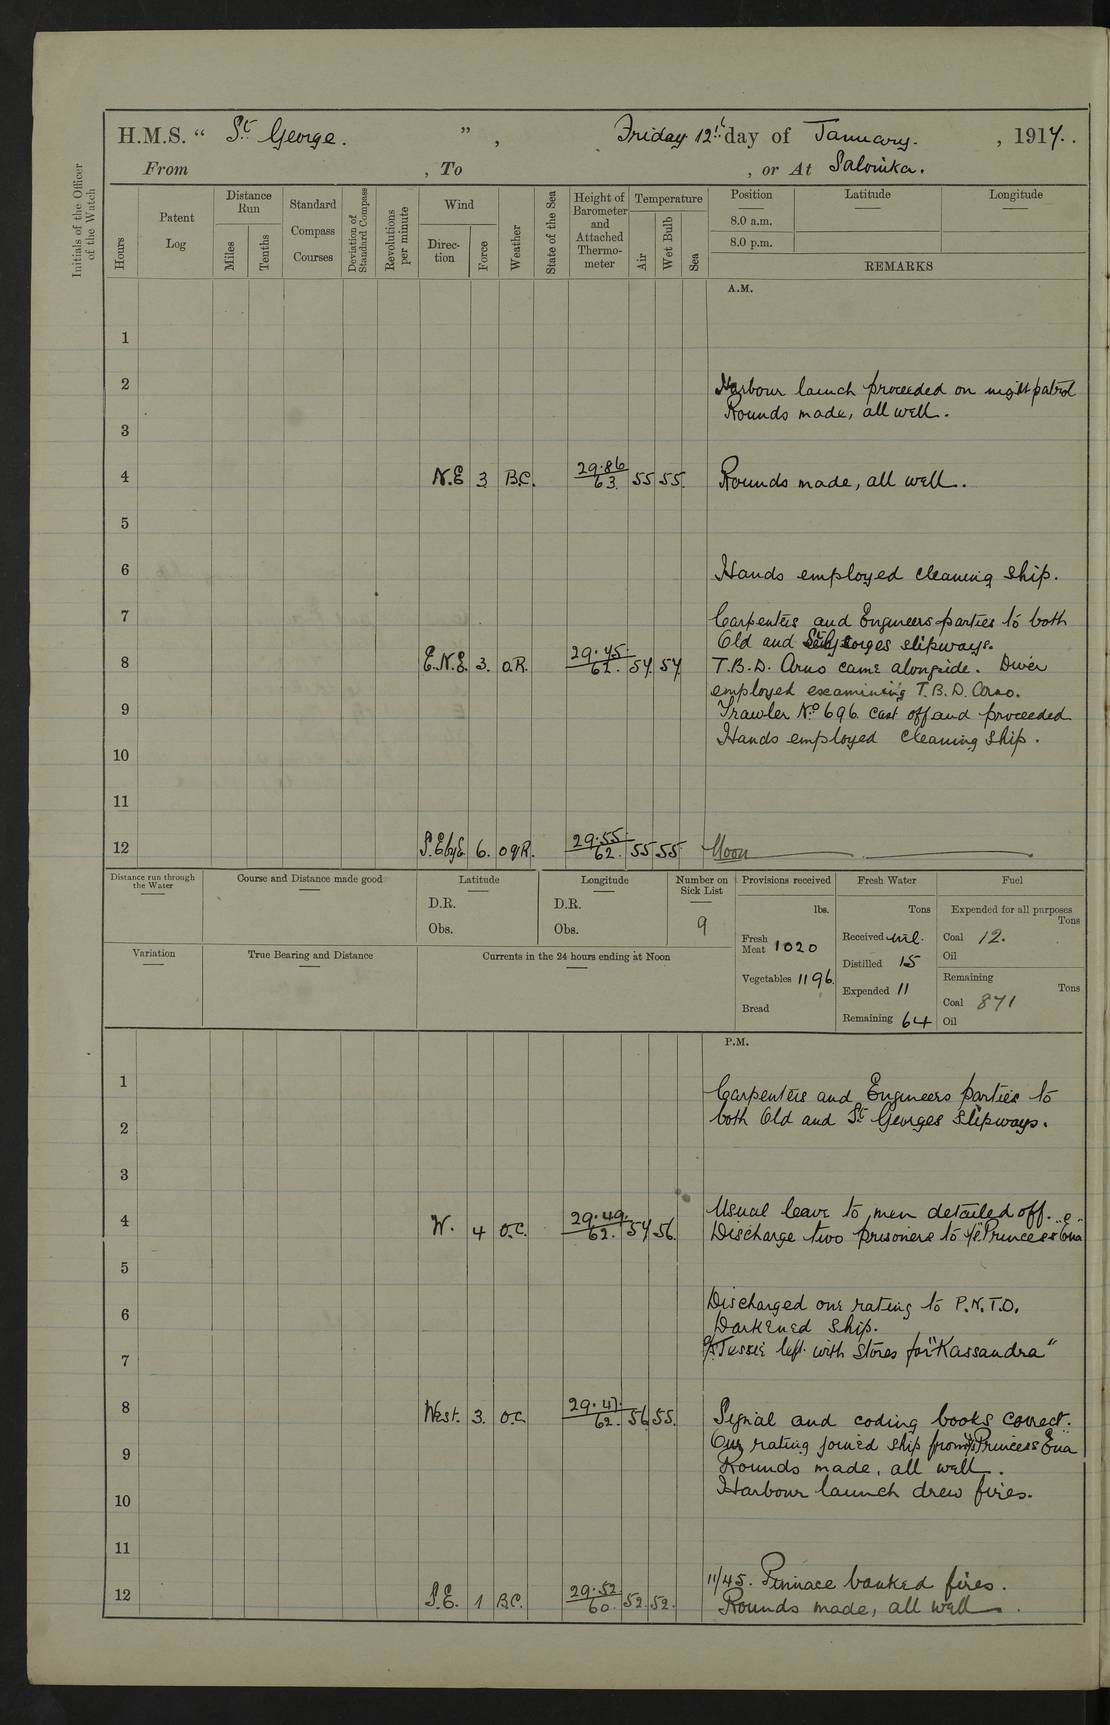 H.M.S. “ St George. ” , Friday 12th day of January. , 1917.
From , To , or At Salonika.
Initials of the Officer of the Watch
Hours
Patent Log
Distance Run
Miles
Tenths
Standard Compass Courses
Deviation of Standard Compass
Revolutions per minute
Wind
Direction
Force
Weather
State of the Sea
Height of Barometer and Attached Thermometer
Temperature
Air
Wet Bulb
Sea
Position Latitude Longitude
8.0 a.m.
8.0 p.m.
REMARKS
A.M.
1
2 Harbour launch proceeded on night patrol
Rounds made, all well.
3
4 N.E 3 B.C. 29.86 63. 55 55. Rounds made, all well.
5
6 Hands employed cleaning ship.
7 Carpenters and Engineers parties to both
Old and St Georges slipways.
8 E.N.E. 3. O.R. 29.45. 62. 54 54 T.B.D. Arno came alongside. Diver
employed examining T.B.D. Arno.
9 Trawler No 696 cast off and proceeded
Hands employed cleaning ship.
10
11
12 S.E by E. 6. O q R. 29.55. 62. 55 55. Noon
Distance run through the Water
Course and Distance made good
Latitude
D.R.
Obs.
Longitude
D.R.
Obs.
Number on Sick List
9
Provisions received
lbs.
Fresh Meat 1020
Vegetables 1196.
Bread
Fresh Water
Tons
Received nil.
Distilled 15
Expended 11
Remaining 64
Fuel
Expended for all purposes
Tons
Coal 12.
Oil
Remaining
Tons
Coal 871
Oil
Variation
True Bearing and Distance
Currents in the 24 hours ending at Noon
P.M.
1 Carpenters and Engineers parties to
2 both Old and St Georges slipways.
3
4 W. 4 O.C. 29.49. 62. 54 56. Usual leave to men detailed off.
Discharge two prisoners to "Princess Ena"
5
6 Discharged one rating to P.N.T.O.
Darkened ship.
7 Tessie left with stores for "Kassandra"
8 West. 3. O.C. 29.47. 62. 56 55. Signal and coding books correct.
9 One rating joined ship from "Princess Ena"
Rounds made, all well.
10 Harbour launch drew fires.
11
12 S.E. 1 B.C. 29.52 60. 52. 52. 11/45. Pinnace banked fires.
Rounds made, all well.